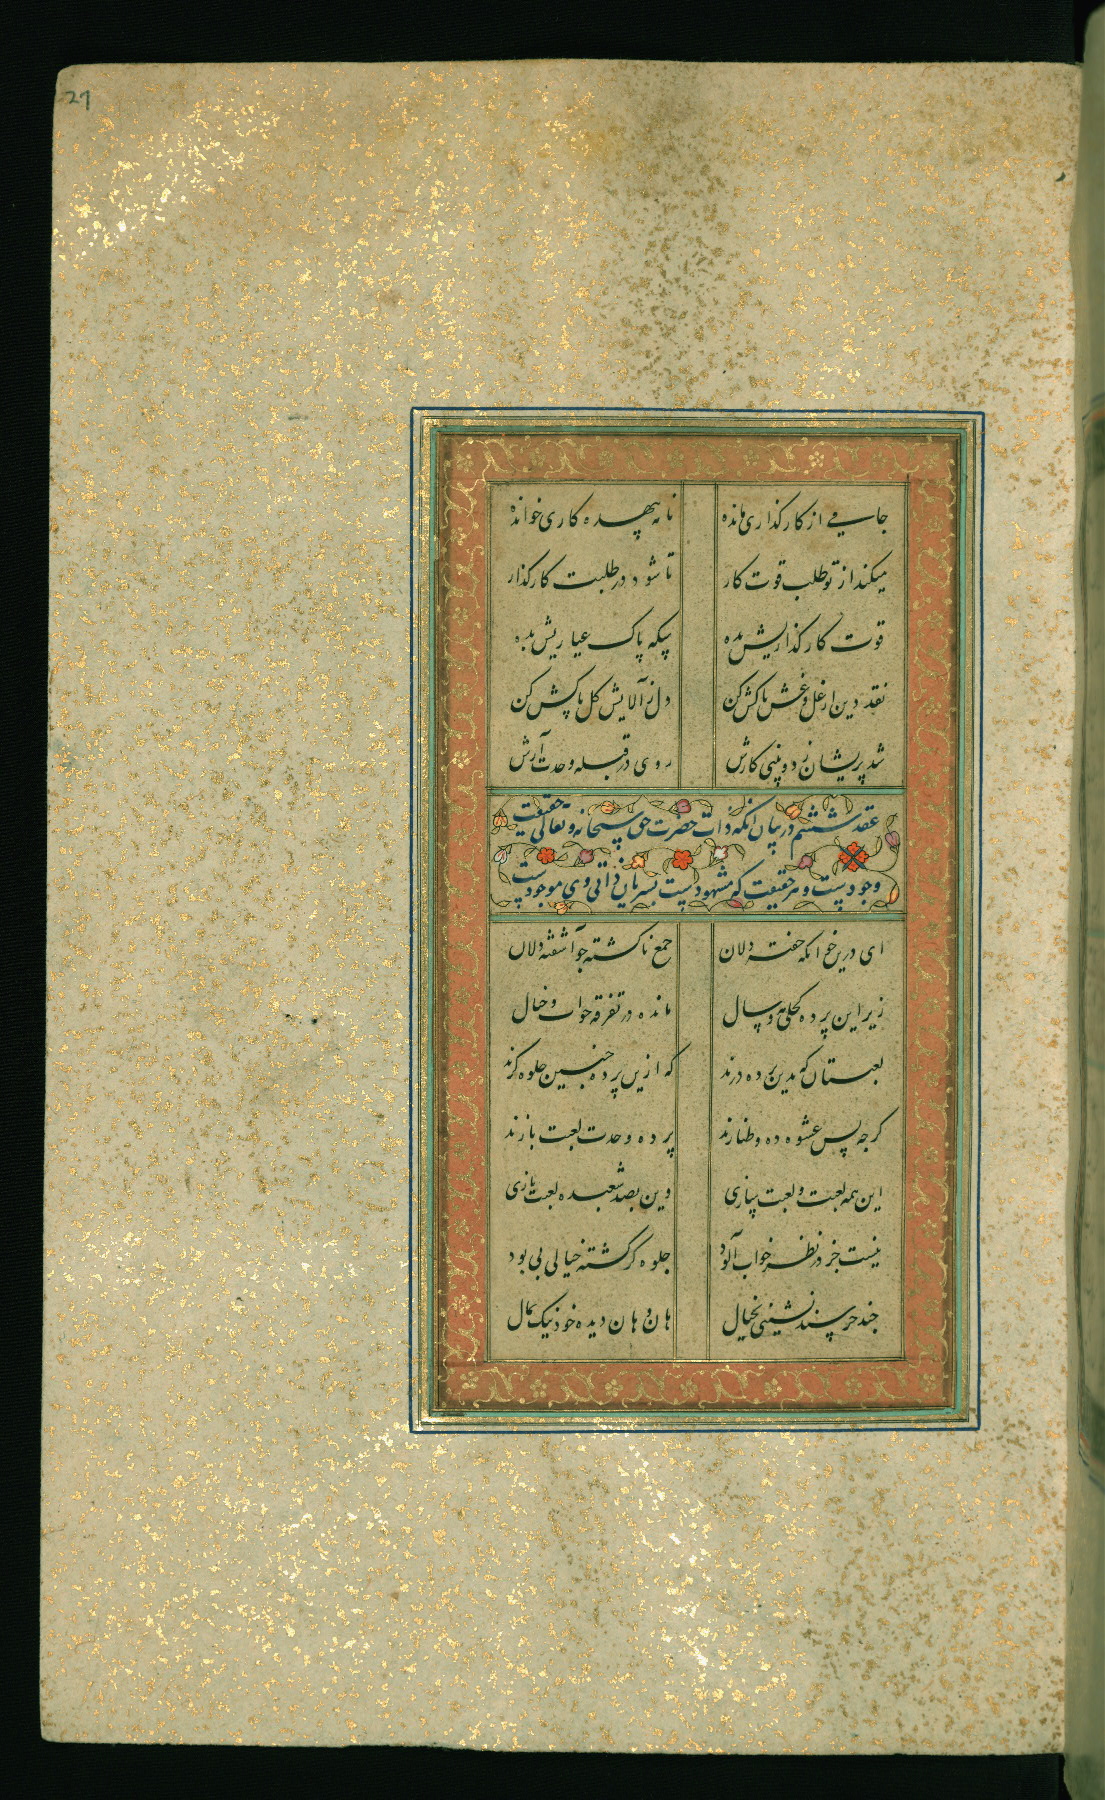 27
جامی از کارگذاری مانده نامه بیهده کاری خوانده
میکند از تو طلب قوت کار تا شود در طلبت کارگذار
قوت کارگذاریش بده سکه پاک عیاریش بده
نقد دین از غل و غش پاکش کن دل ز آلایش گل پاکش کن
شد پریشان ز دو بینی کارش روی در قبله وحدت آرش
عقد ششم در بیان آنکه ذات حضرت حق سبحانه و تعالی حقیقت
وجودست و هر حقیقت که مشهودست بسریان ذاتی وی موجودست
ای درین خوابگه خفته دلان جمع ناگشته چو آشفته دلان
زیر این پرده کحلی مه و سال مانده در تفرقه خواب و خیال
لعبتان که بدین پرده درند که ازین پرده چنین جلوه گرند
گرچه بس عشوه ده و طنازند پرده وحدت لعبت بازند
این همه لعبت و لعبت سازی وین بصد شعبده لعبت بازی
نیست جز در نظر خواب آلود جلوه گر گشته خیالی بی بود
چند خرسند نشینی بخیال هان و هان دیده خود نیک بمال